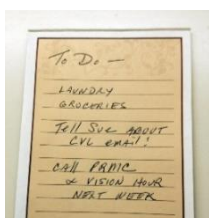 To Do —
LAUNDRY
GROCERIES
Tell Sue ABOUT
CVL email!
CALL PRMC
& VISION HOUR
NEXT WEEK